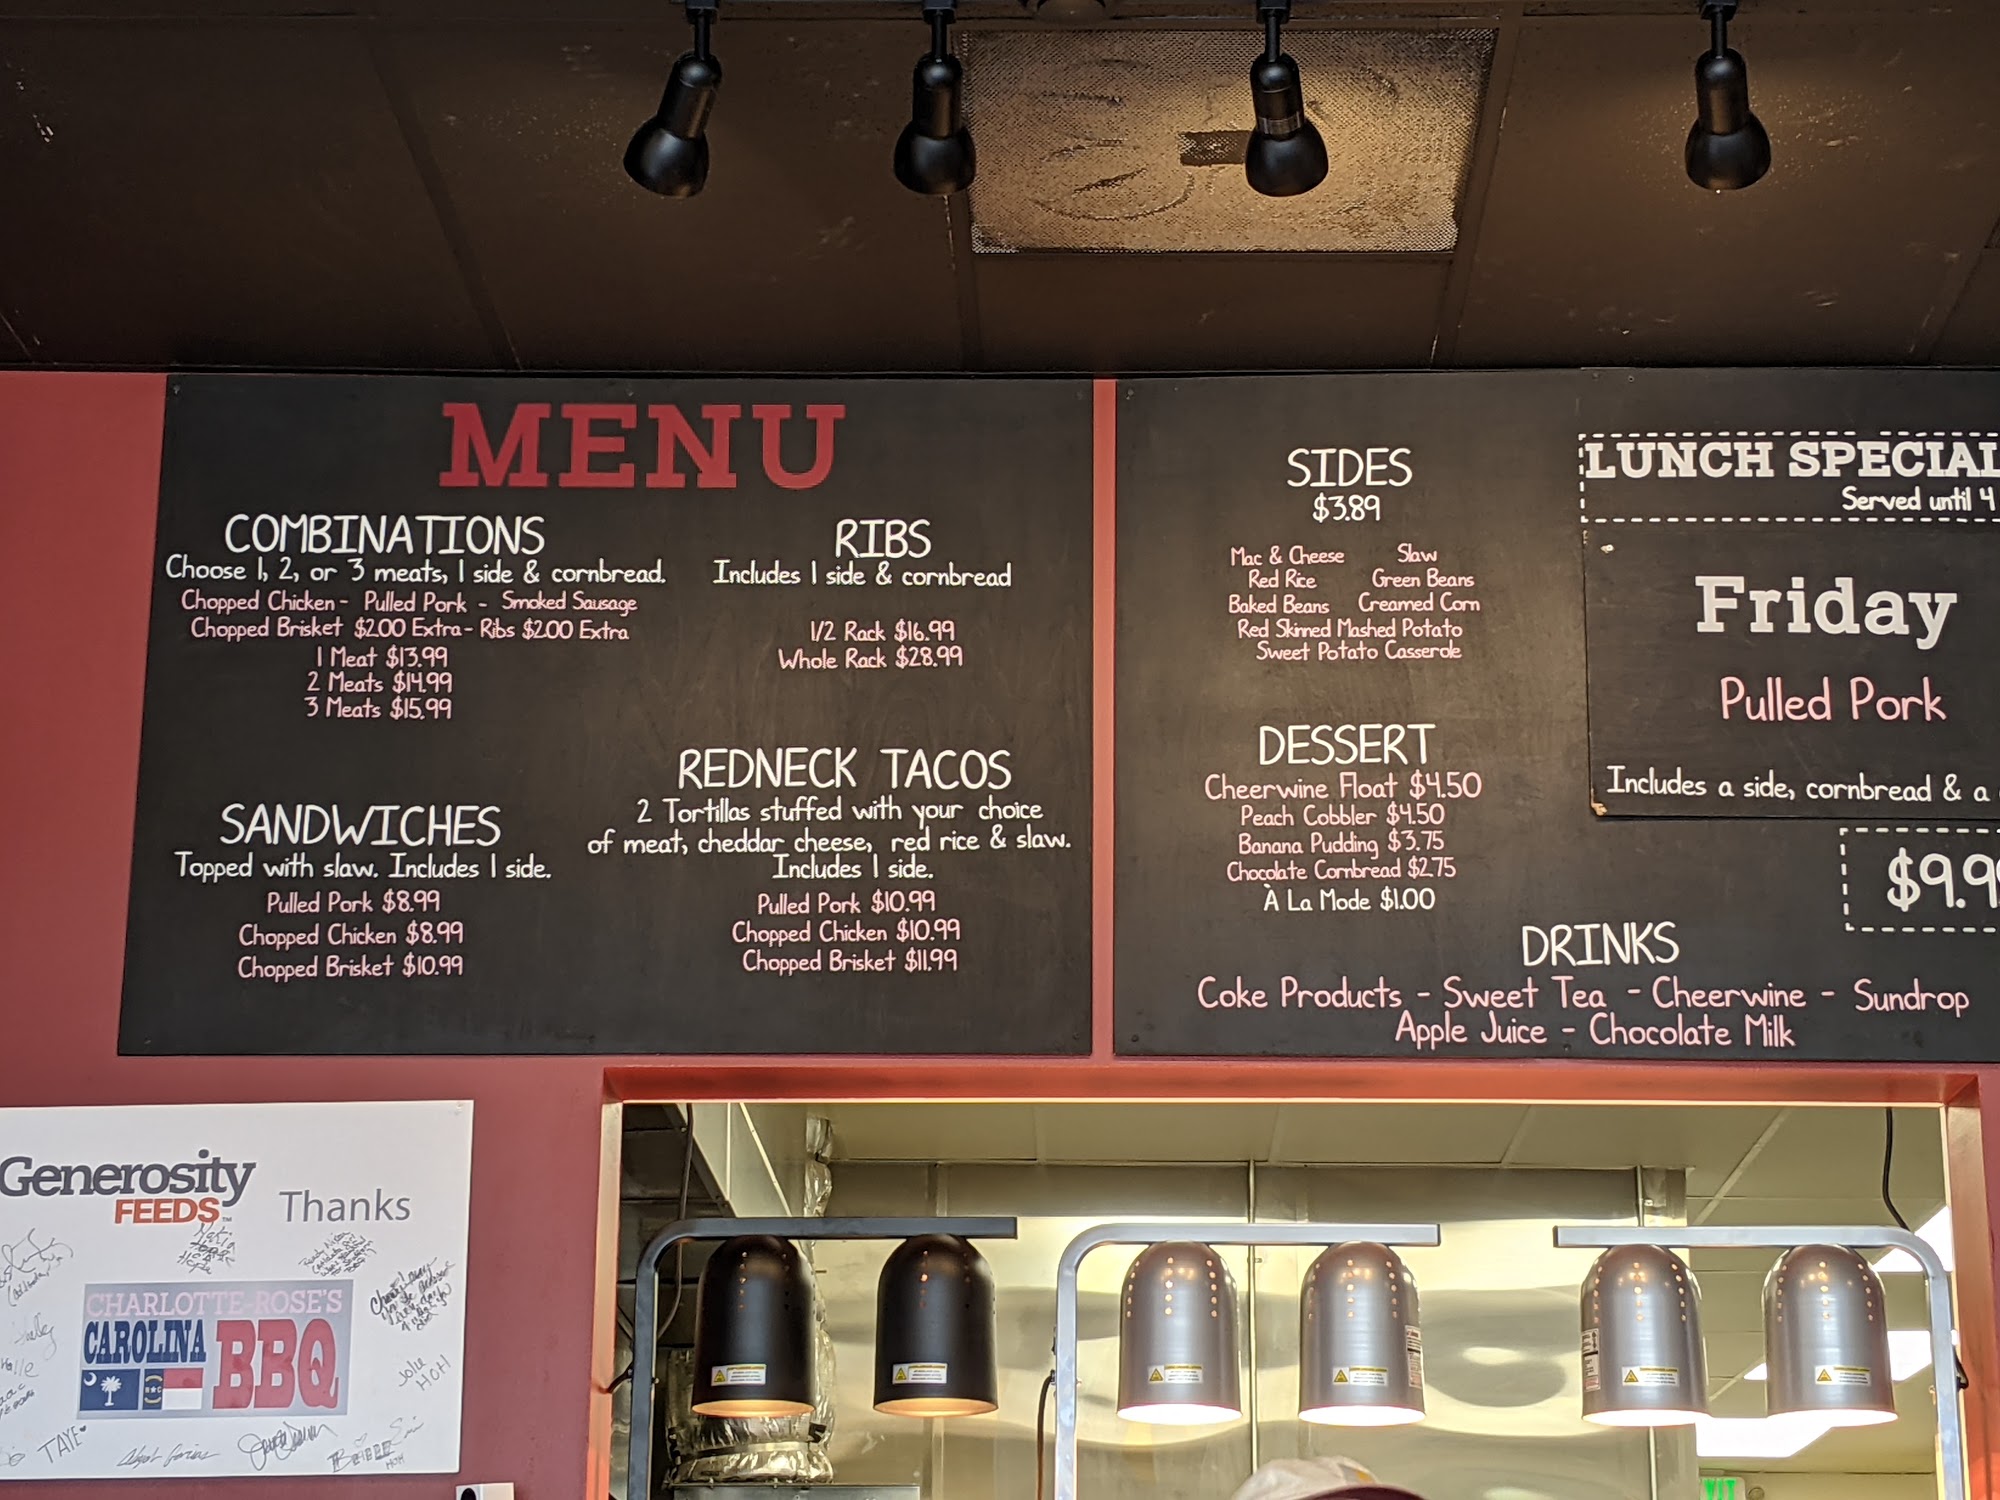 MENU
COMBINATIONS
Choose 1, 2, or 3 meats, 1 side & cornbread.
Chopped Chicken - Pulled Pork - Smoked Sausage
Chopped Brisket $2.00 Extra - Ribs $2.00 Extra
1 Meat $13.99
2 Meats $14.99
3 Meats $15.99
RIBS
Includes 1 side & cornbread
1/2 Rack $16.99
Whole Rack $28.99
SANDWICHES
Topped with slaw. Includes 1 side.
Pulled Pork $8.99
Chopped Chicken $8.99
Chopped Brisket $10.99
REDNECK TACOS
2 Tortillas stuffed with your choice
of meat, cheddar cheese, red rice & slaw.
Includes 1 side.
Pulled Pork $10.99
Chopped Chicken $10.99
Chopped Brisket $11.99
SIDES
$3.89
Mac & Cheese Slaw
Red Rice Green Beans
Baked Beans Creamed Corn
Red Skinned Mashed Potato
Sweet Potato Casserole
DESSERT
Cheerwine Float $4.50
Peach Cobbler $4.50
Banana Pudding $3.75
Chocolate Cornbread $2.75
À La Mode $1.00
LUNCH SPECIAL
Served until 4
Friday
Pulled Pork
Includes a side, cornbread & a
$9.99
DRINKS
Coke Products - Sweet Tea - Cheerwine - Sundrop
Apple Juice - Chocolate Milk
Generosity
FEEDS™
Thanks
CHARLOTTE-ROSE'S
CAROLINA
BBQ
TAYE
HOH
EXIT